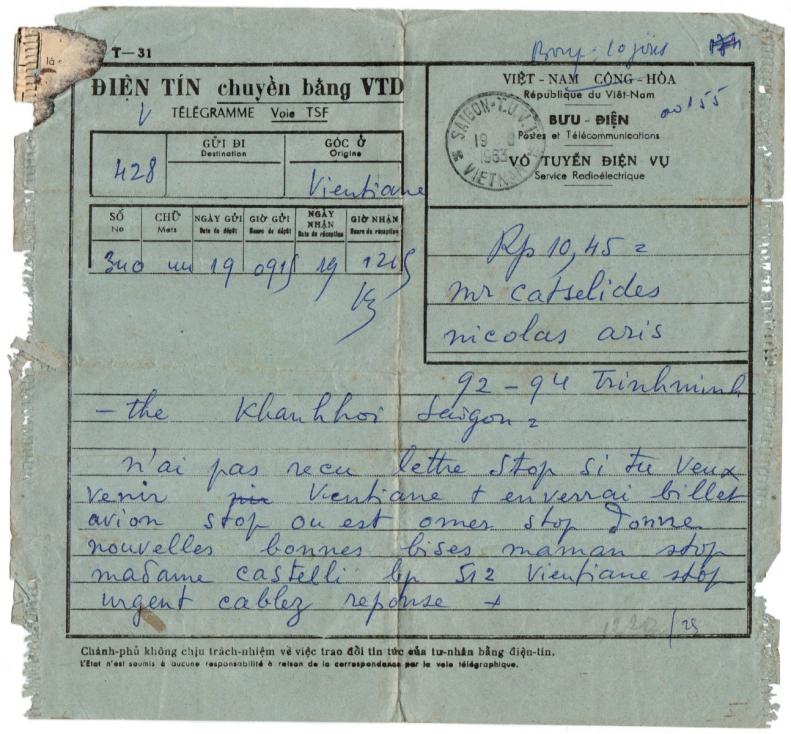 T—31
là
ĐIỆN TÍN chuyển bằng VTD
TÉLÉGRAMME Voie TSF
V
VIỆT-NAM CỘNG-HÒA
République du Viêt-Nam
BƯU-ĐIỆN
Postes et Télécommunications
VÔ TUYẾN ĐIỆN VỤ
Service Radioélectrique
SAIGON-T.U.V.D
19
1963
VIETNAM
GỬI ĐI
Destination
GỐC Ở
Origine
428
Vientiane
SỐ
No
CHỮ
Mots
NGÀY GỬI
Date de dépôt
GIỜ GỬI
Heure de dépôt
NGÀY NHẬN
Date de réception
GIỜ NHẬN
Heure de réception
340 19 0915 19 1215
Rp 10,45 =
mr catselides
nicolas aris
92-94 Trinhminh
-the Khanhhoi Saigon =
n'ai pas recu lettre stop si tu veux
venir Vientiane t enverrai billet
avion stop ou est omer stop donne
nouvelles bonnes bises maman stop
madame castelli bp 512 Vientiane stop
urgent cablez reponse +
1220/25
Chánh-phủ không chịu trách-nhiệm về việc trao đổi tin tức của tư-nhân bằng điện-tín.
L'État n'est soumis à aucune responsabilité à raison de la correspondance par la voie télégraphique.